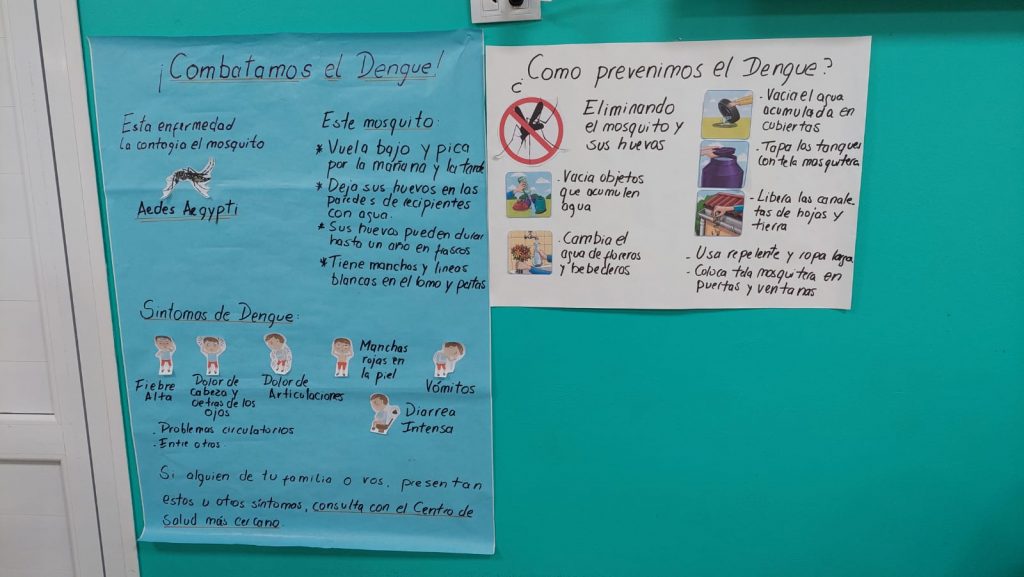 ¡Combatamos el Dengue!
Esta enfermedad
la contagia el mosquito
Aedes Aegypti
Este mosquito:
* Vuela bajo y pica
por la mañana y la tarde
* Deja sus huevos en las
paredes de recipientes
con agua.
* Sus huevos pueden durar
hasta un año en frascos
* Tiene manchas y lineas
blancas en el lomo y patas
Sintomas de Dengue:
Fiebre
Alta
Dolor de
cabeza y
detras de los
ojos
Dolor de
Articulaciones
Manchas
rojas en
la piel
Vómitos
Diarrea
Intensa
- Problemas circulatorios
- Entre otros
Si alguien de tu familia o vos, presentan
estos u otros síntomas, consulta con el Centro de
Salud más cercano.
¿Como prevenimos el Dengue?
Eliminando
el mosquito y
sus huevos
- Vacia objetos
que acumulen
agua
- Cambia el
agua de floreros
y bebederos
- Vacia el agua
acumulada en
cubiertas
- Tapa los tanques
con tela mosquitera
- Libera las canale-
tas de hojas y
tierra
- Usa repelente y ropa larga
- Coloca tela mosquitera en
puertas y ventanas